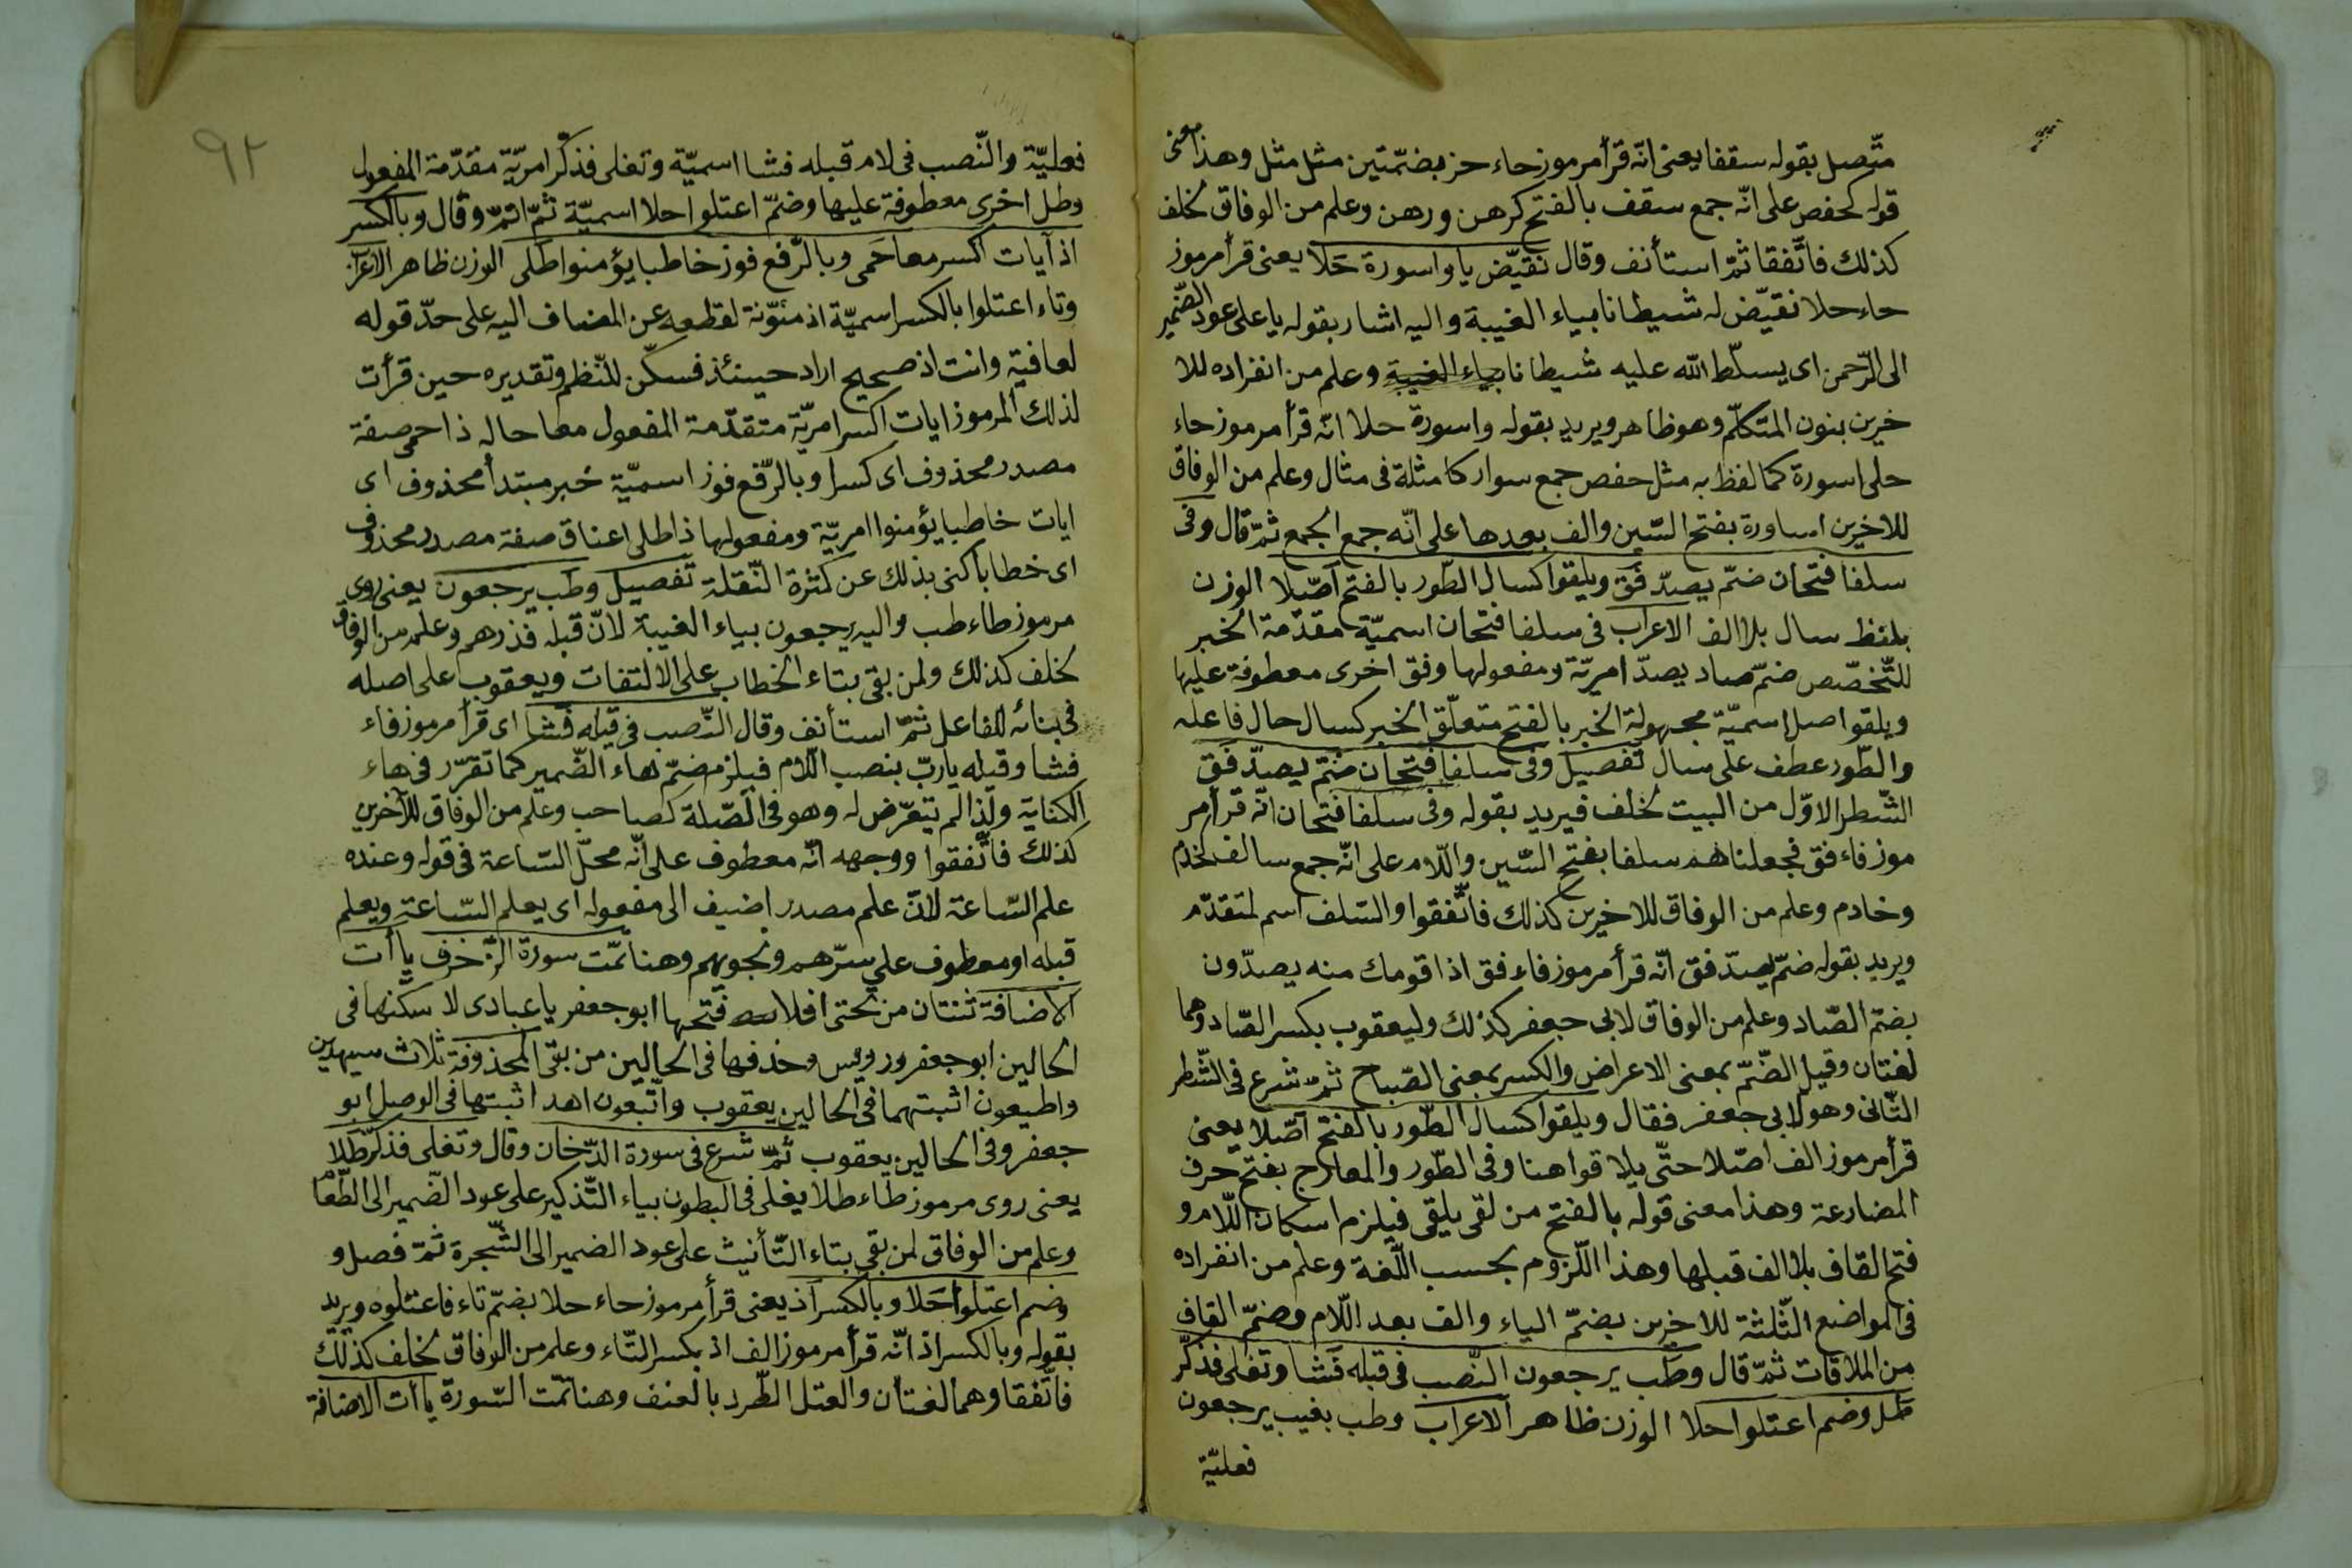 متّصل بقوله سقفا يعنى انّه قرأ مرموز حاء حز بضمّتين مثل مثل وهذا معنى
قوله كحفص على انّه جمع سقف بالفتح كرهن ورهن وعلم من الوفاق لخلف
كذلك فاتّفقا ثمّ استأنف وقال نقيّض يا واسورة حَلا يعنى قرأ مرموز
حاء حلا نقيّض له شيطانا بياء الغيبة واليه اشار بقوله يا على عود الضّمير
الى الرّحمن اى يسلّط الله عليه شيطانا بياء الغيبة وعلم من انفراده للا
خرين بنون المتكلّم وهو ظاهر ويريد بقوله واسورة حلا انّه قرأ مرموز حاء
حلى اسورة كما لفظ به مثل حفص جمع سوار كامثلة فى مثال وعلم من الوفاق
للاخرين اساورة بفتح السّين والف بعدها على انّه جمع الجمع ثمّ قال وفى
سلفا فتحان ضمّ يصدّ فق ويلقوا كسال الطّور بالفتح اصّلا الوزن
بلفظ سال بلا الف الاعراب فى سلفا فتحان اسميّة مقدّمة الخبر
للتّخصّص ضمّ صاد يصدّ امريّة ومفعولها وفق اخرى معطوفة عليها
ويلقوا صل اسميّة مجهولة الخبر بالفتح متعلّق الخبر كسال حال فاعله
والطّور عطف على سال تفصيل وفى سلفا فتحان ضمّ يصدّ فق
الشّطر الاوّل من البيت لخلف فيريد بقوله وفى سلفا فتحان انّه قرأ مر
موز فاء فق فجعلناهم سلفا بفتح السّين واللّام على انّه جمع سالف كخدم
وخادم وعلم من الوفاق للاخرين كذلك فاتّفقوا والسّلف اسم لمتقدّم
ويريد بقوله ضمّ يصدّ فق انّه قرأ مرموز فاء فق اذا قومك منه يصدّون
بضمّ الصّاد وعلم من الوفاق لابى جعفر كذلك وليعقوب بكسر الصّاد وهما
لغتان وقيل الضّمّ بمعنى الاعراض والكسر بمعنى الصّياح ثمّ شرع فى الشّطر
الثّانى وهو لابى جعفر فقال ويلقوا كسال الطّور بالفتح اصّلا يعنى
قرأ مرموز الف اصّلا حتّى يلاقوا هنا وفى الطّور والمعارج بفتح حرف
المضارعة وهذا معنى قوله بالفتح من لقى يلقى فيلزم اسكان اللّام و
فتح القاف بلا الف قبلها وهذا اللّزوم بحسب اللّغة وعلم من انفراده
فى المواضع الثّلثة للاخرين بضمّ الياء والف بعد اللّام وضمّ القاف
من الملاقات ثمّ قال وطب يرجعون النّصب فى قبله فَشا وتغلى فذكّر
طل وضم اعتلوا حلا الوزن ظاهر الاعراب وطب بغيب يرجعون
فعليّة
٩٢
فعليّة والنّصب فى لام قبله فشا اسميّة وتغلى فذكّر امريّة مقدّمة المفعول
وطل اخرى معطوفة عليها وضمّ اعتلوا حلا اسميّة ثمّ اتمّ وقال وبالكسر
اذ آيات اكسر معا حَمى وبالرّفع فوز خاطبا يؤمنوا طلى الوزن ظاهر الاعراب
وتاء اعتلوا بالكسر اسميّة اذ منوّنة لقطعه عن المضاف اليه على حدّ قوله
لعافية وانت اذ صحيح اراد حينئذ فسكّن للنّظم وتقديره حين قرأت
لذلك المرموز ايات اكسر امريّة متقدّمة المفعول معا حاله ذا حمى صفة
مصدر محذوف اى كسرا وبالرّفع فوز اسميّة خبر مبتدأ محذوف اى
ايات خاطبا يؤمنوا امريّة ومفعولها ذا طلى اعناق صفة مصدر محذوف
اى خطابا كنى بذلك عن كثرة النّقلة تفصيل وطب يرجعون يعنى روى
مرموز طاء طب واليه يرجعون بياء الغيبة لانّ قبله فذرهم وعلم من الوفاق
لخلف كذلك ولمن بقى بتاء الخطاب على الالتفات ويعقوب على اصله
فى بنائه للفاعل ثمّ استأنف وقال النّصب فى قيله فشا اى قرأ مرموز فاء
فشا وقيله يا ربّ بنصب اللّام فيلزم ضمّ هاء الضّمير كما تقرّر فى هاء
الكناية ولذا لم يتعرّض له وهو فى الصّلة كصاحب وعلم من الوفاق للآخرين
كذلك فاتّفقوا ووجهه انّه معطوف على انّه محلّ السّاعة فى قوله وعنده
علم السّاعة لانّ علم مصدر اضيف الى مفعوله اى يعلم السّاعة ويعلم
قيله او معطوف على سرّهم ونجويهم وهنا تمّت سورة الزّخرف يا أت
الاضافة ثنتان من تحتى افلا فتحها ابو جعفر يا عبادى لا سكنها فى
الحالين ابو جعفر ورويس وحذفها فى الحالين من بقى المحذوفة ثلاث سيهدين
واطيعون اثبتهما فى الحالين يعقوب واتّبعون اهد اثبتها فى الوصل ابو
جعفر وفى الحالين يعقوب ثمّ شرع فى سورة الدّخان وقال وتغلى فذكّر طلا
يعنى روى مرموز طاء طلا يغلى فى البطون بياء التّذكير على عود الضّمير الى الطّعام
وعلم من الوفاق لمن بقى بتاء التّأنيث على عود الضمير الى الشّجرة ثمّ فصل و
وضم اعتلوا حَلا وبالكسر اذ يعنى قرأ مرموز حاء حلا بضمّ تاء فاعتلوه ويريد
بقوله وبالكسر اذ انّه قرأ مرموز الف اذ بكسر التّاء وعلم من الوفاق لخلف كذلك
فاتّفقا وهما لغتان والعتل الطّرد بالعنف وهنا تمّت السّورة يا أت الاضافة